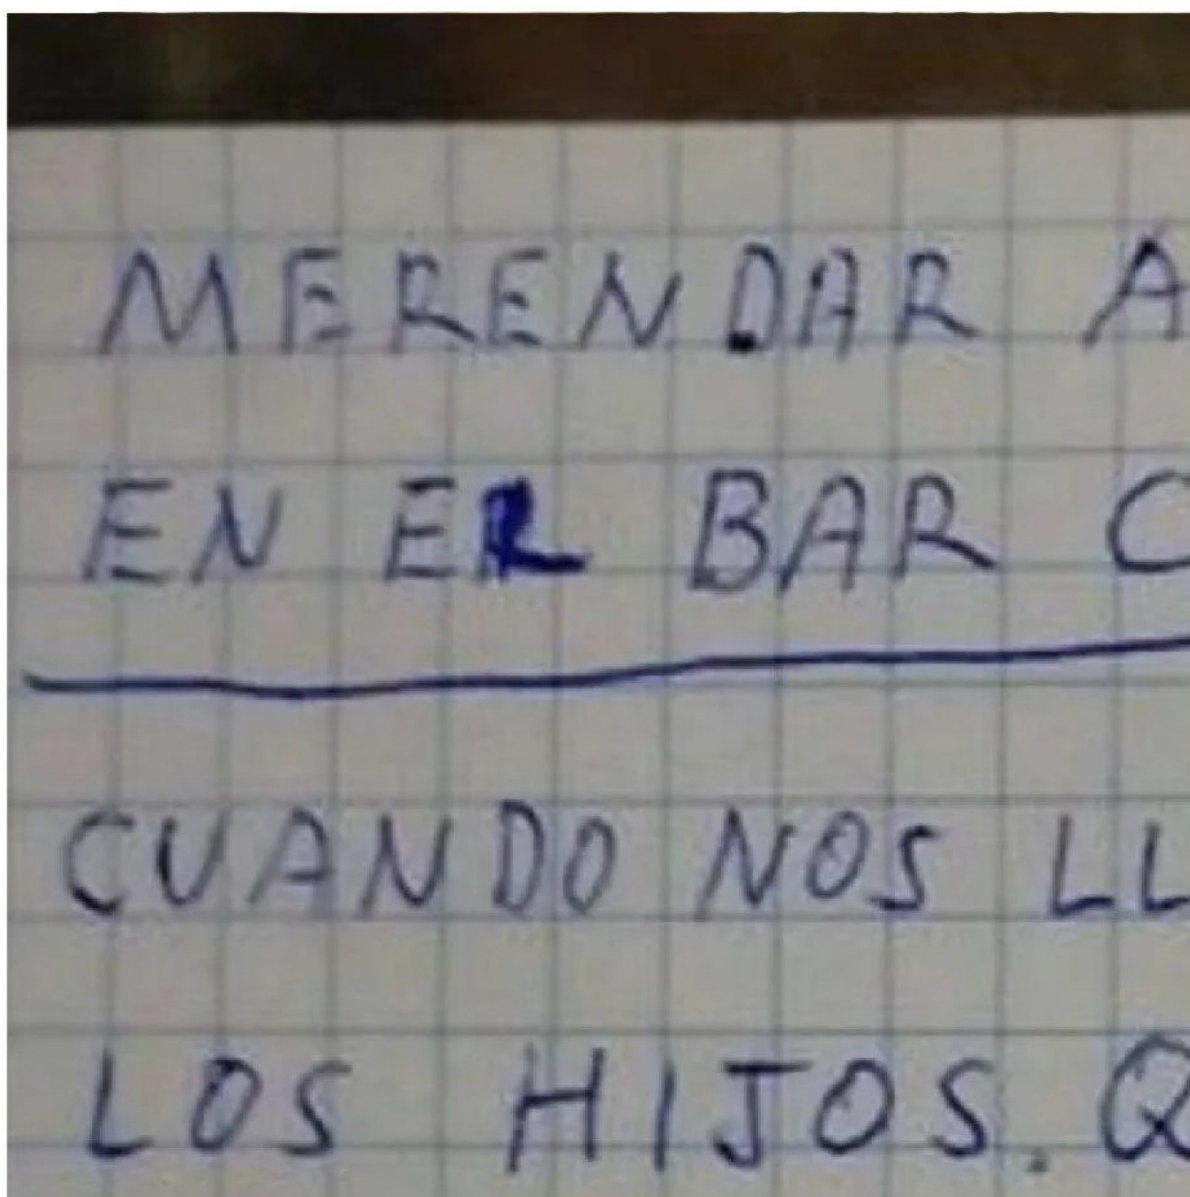 MERENDAR A
EN ER BAR C
CUANDO NOS LL
LOS HIJOS. Q